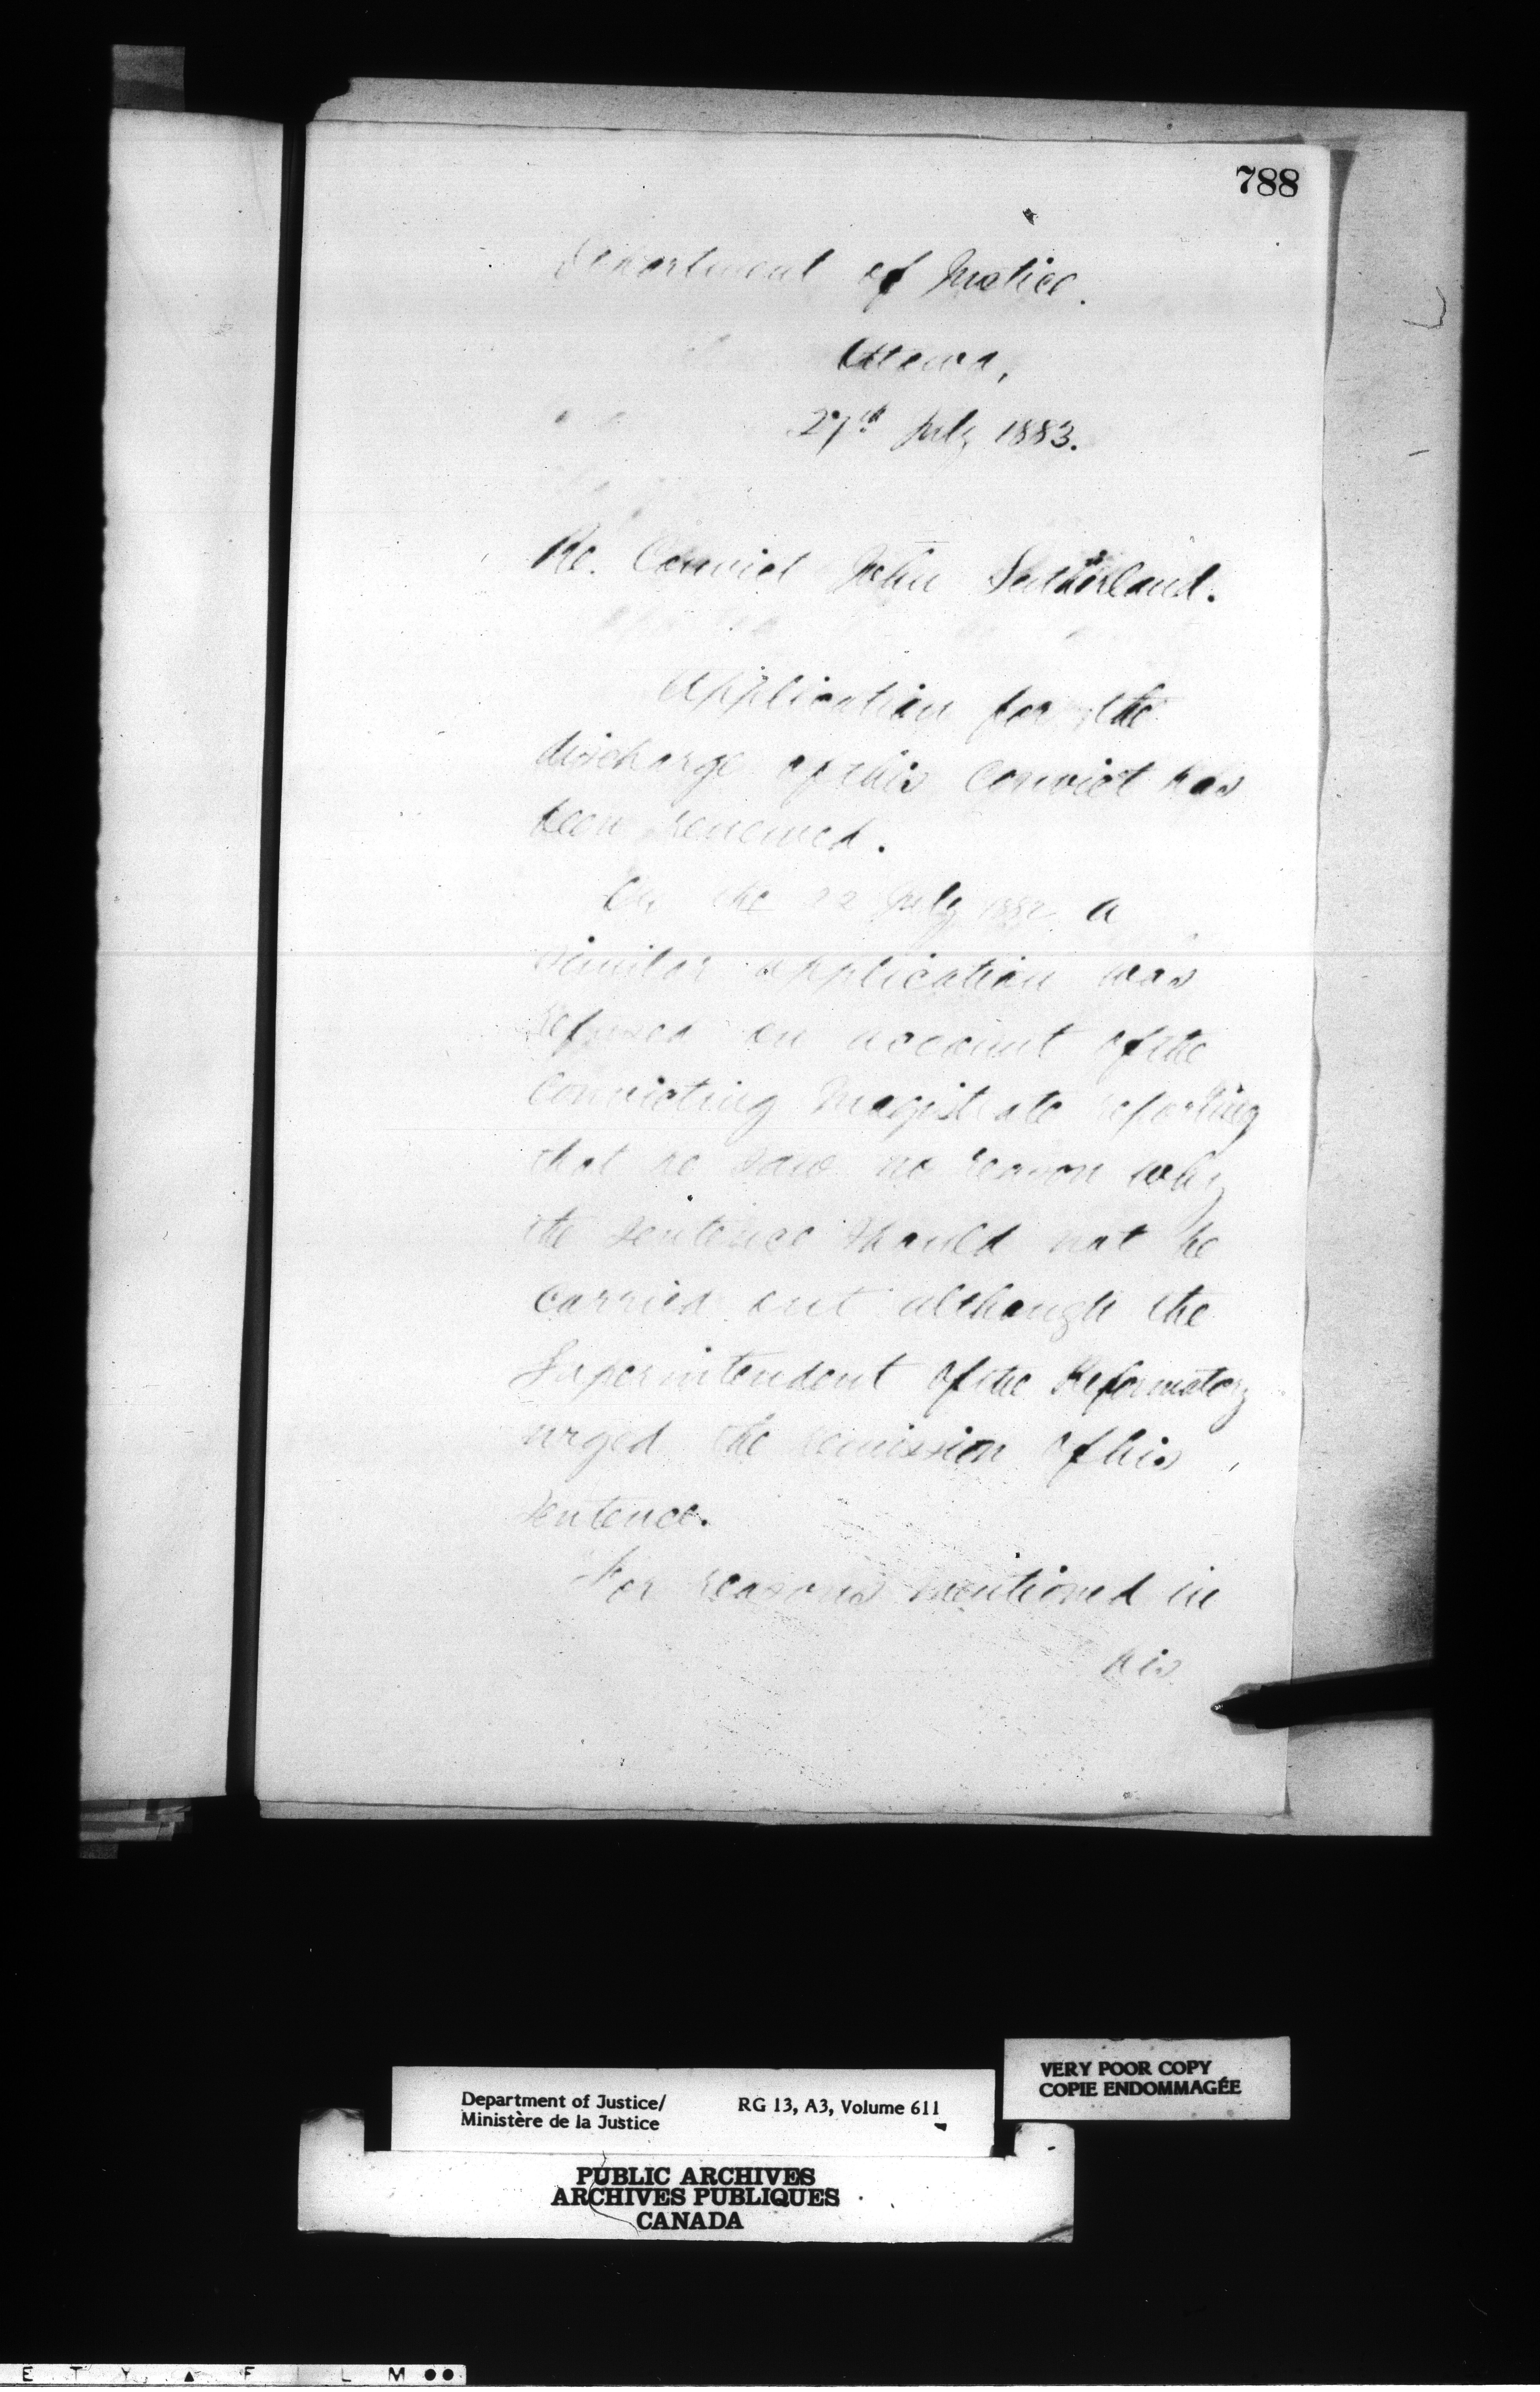 788
Department of Justice.
Ottawa,
27th July 1883.
Re. Convict John Sutherland.
Application for the
discharge of this Convict has
been renewed.
On the 22 July 1882 a
similar application was
refused on account of the
Convicting Magistrate reporting
that he saw no reason why
the sentence should not be
carried out although the
Superintendent of the Reformatory
urged the remission of his
sentence.
For reasons mentioned in
his
VERY POOR COPY
COPIE ENDOMMAGÉE
Department of Justice/
Ministère de la Justice
RG 13, A3, Volume 611
PUBLIC ARCHIVES
ARCHIVES PUBLIQUES
CANADA
E T Y ▲ F I L M ●●